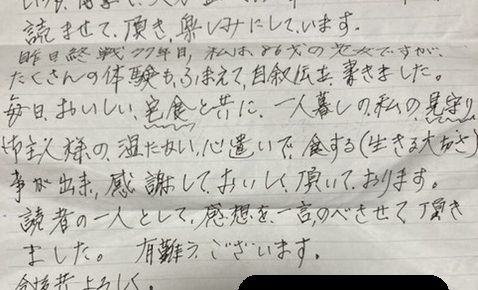 読ませて、頂き、楽しみにしています。
昨日終戦77年目、私は86才の老女ですが、
たくさんの体験もふまえて、自叙伝を書きました。
毎日、おいしい宅食と共に、一人暮しの私の見守り
主人様の温たかい心遣いで食する(生きる大切さ)
事が出来、感謝しておいしく頂いております。
読者の一人として、感想を一言、のべさせて頂き
ました。 有難うございます。
今後共よろしく。